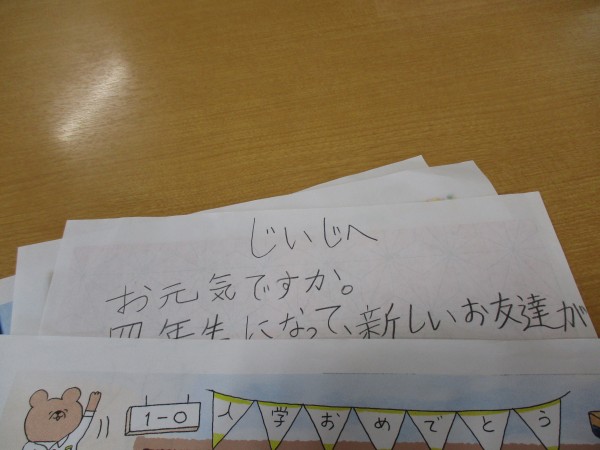 じいじへ
お元気ですか。
四年生になって、新しいお友達が
1-0
入学おめでとう